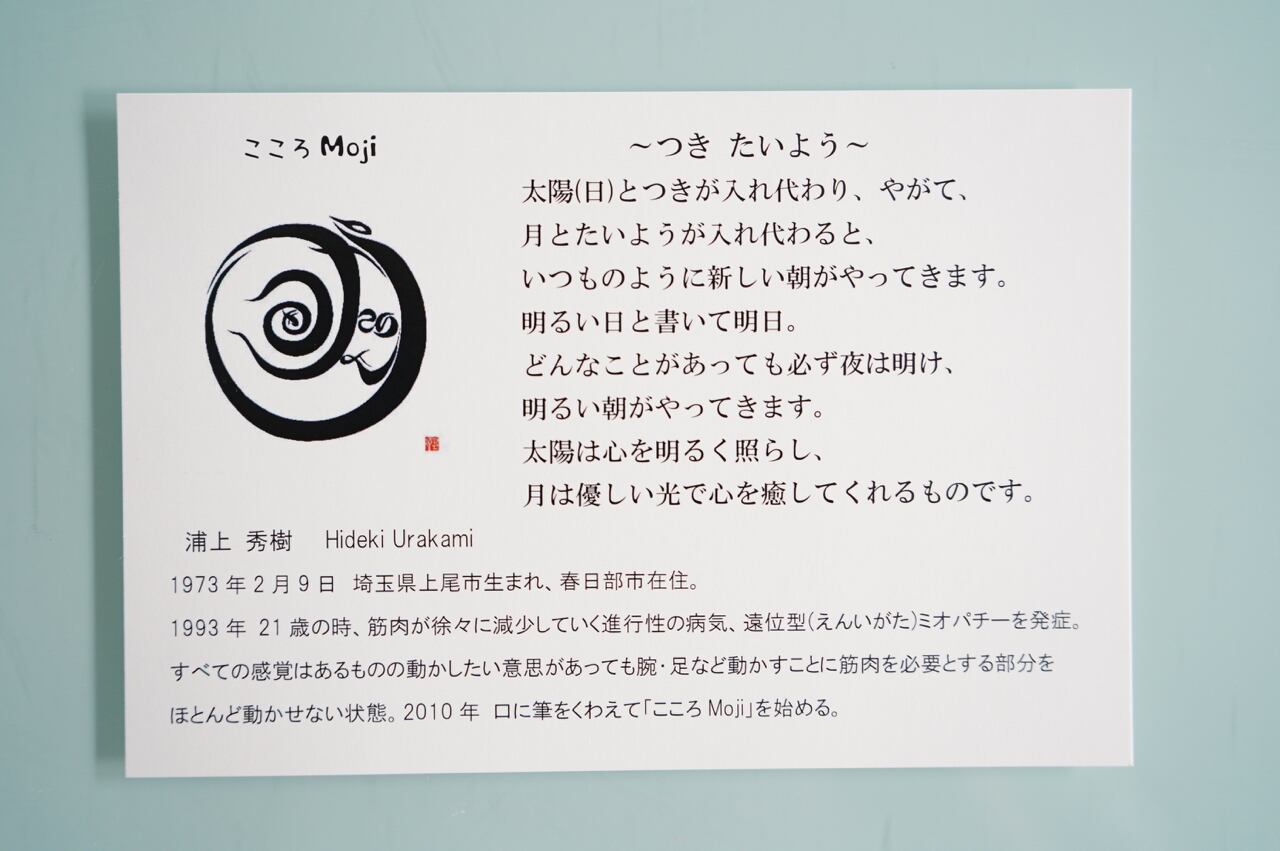 こころ Moji
～つき たいよう～
太陽(日)とつきが入れ代わり、やがて、
月とたいようが入れ代わると、
いつものように新しい朝がやってきます。
明るい日と書いて明日。
どんなことがあっても必ず夜は明け、
明るい朝がやってきます。
太陽は心を明るく照らし、
月は優しい光で心を癒してくれるものです。
浦上 秀樹 Hideki Urakami
1973 年 2 月 9 日 埼玉県上尾市生まれ、春日部市在住。
1993 年 21 歳の時、筋肉が徐々に減少していく進行性の病気、遠位型(えんいがた)ミオパチーを発症。
すべての感覚はあるものの動かしたい意思があっても腕・足など動かすことに筋肉を必要とする部分を
ほとんど動かせない状態。2010 年 口に筆をくわえて「こころ Moji」を始める。